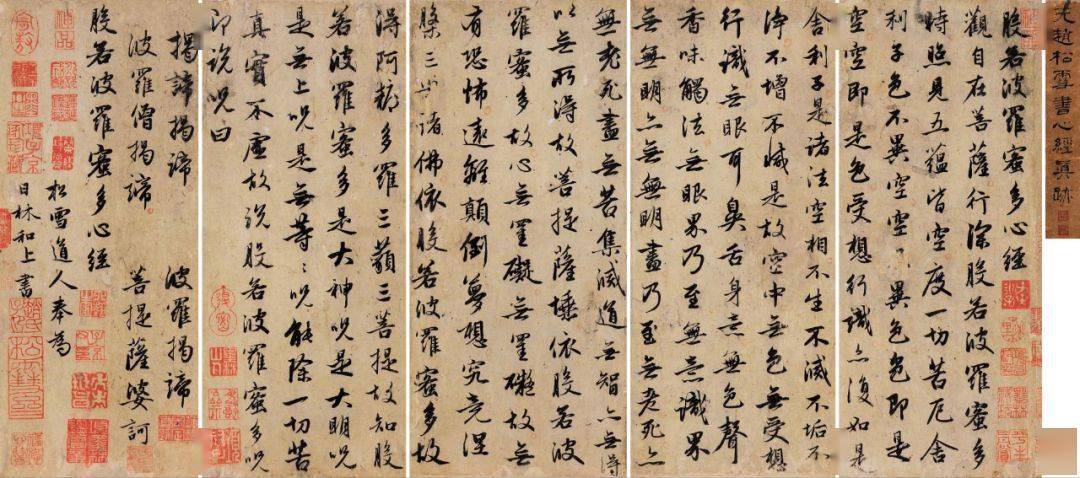 元趙松雪書心經真跡
般若波羅蜜多心經
觀自在菩薩行深般若波羅蜜多
時照見五蘊皆空度一切苦厄舍
利子色不異空空〻異色色即是
空空即是色受想行識亦復如是
舍利子是諸法空相不生不滅不垢不
淨不增不減是故空中無色無受想
行識無眼耳鼻舌身意無色聲
香味觸法無眼界乃至無意識界
無無明亦無無明盡乃至無老死亦
無老死盡無苦集滅道無智亦無得
以無所得故菩提薩埵依般若波
羅蜜多故心無罣礙無罣礙故無
有恐怖遠離顛倒夢想究竟涅
槃三世諸佛依般若波羅蜜多故
得阿耨多羅三藐三菩提故知般
若波羅蜜多是大神呪是大明呪
是無上呪是無等〻呪能除一切苦
真實不虛故說般若波羅蜜多呪
即說呪曰
揭諦揭諦 波羅揭諦
波羅僧揭諦 菩提薩婆訶
般若波羅蜜多心經
松雪道人奉為
日林和上書